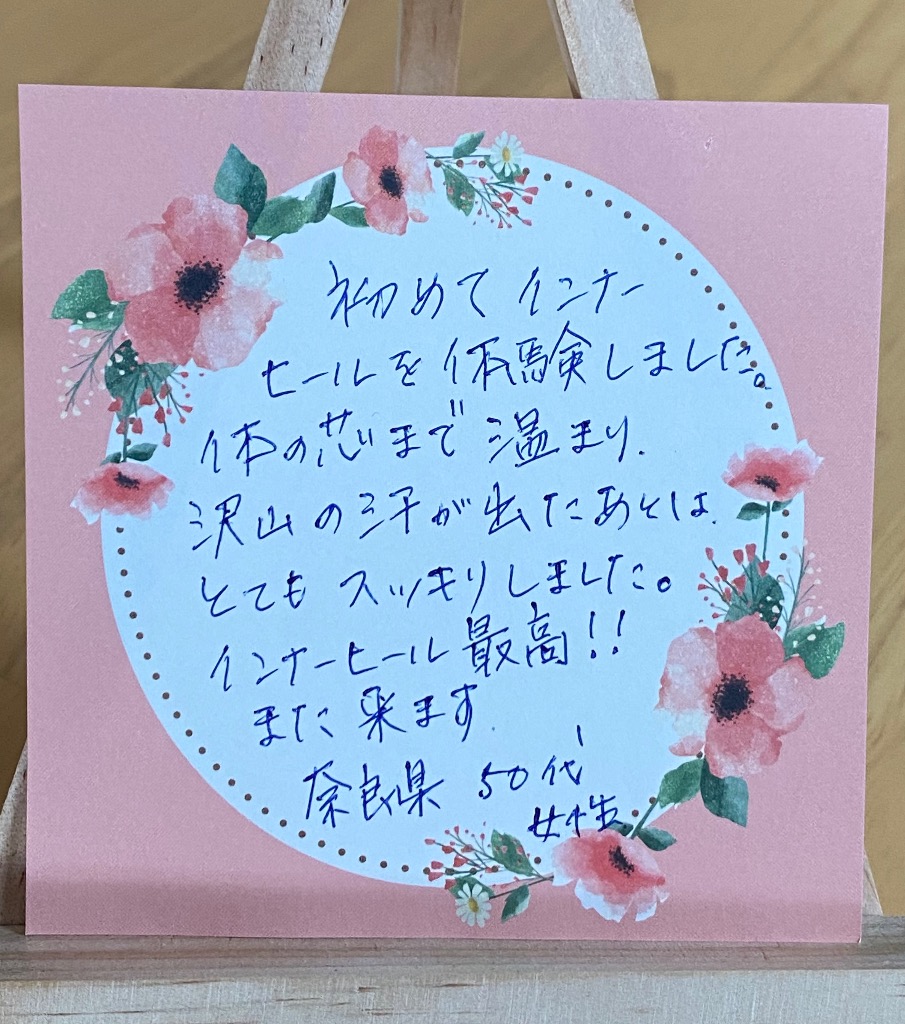 初めてインナー
ヒールを体験しました。
体の芯まで温まり、
沢山の汗が出たあとは、
とてもスッキリしました。
インナーヒール最高!!
また来ます
奈良県 50代
女性